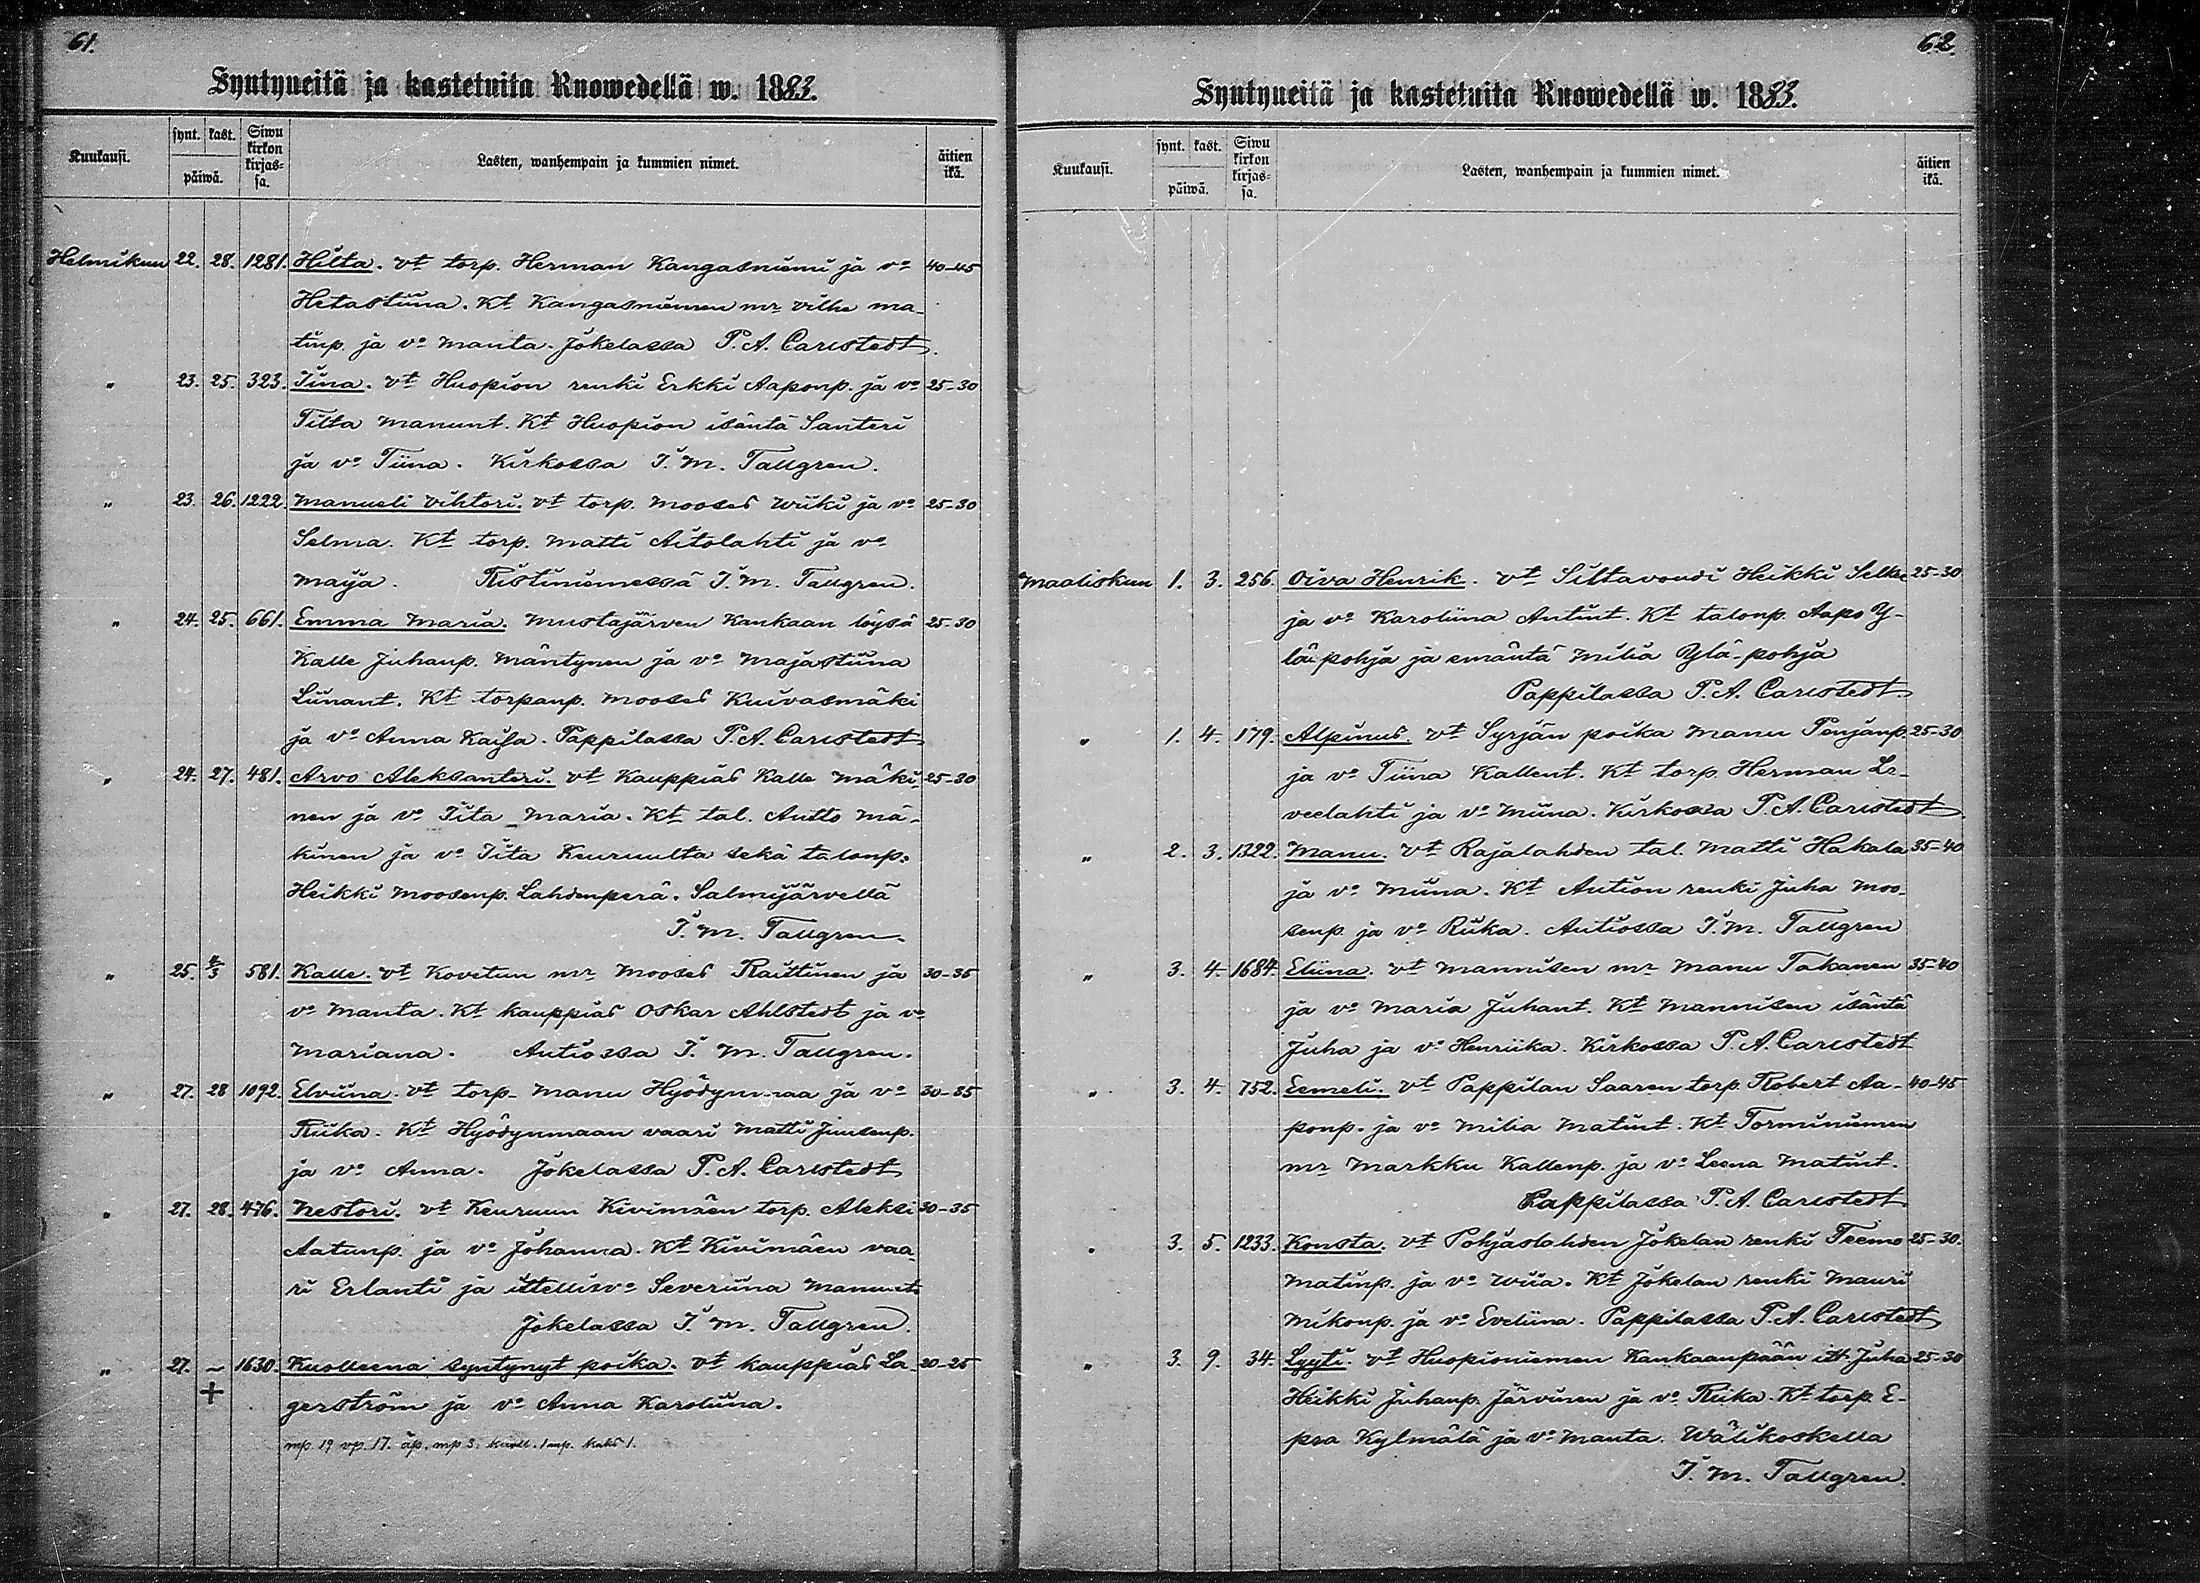 61.
Syntyneitä ja kastetuita Ruowedellä w. 1883.
Kuukausi.
synt. kast.
päiwä.
Siwu
kirkon
kirjas=
sa.
Lasten, wanhempain ja kummien nimet.
äitien
ikä.
Helmikuu 22. 28. 1281. Hilta. vt torp. Herman Kangasniemi ja vo 40-45
Hetastiina. Kt Kangasniemen mr vilhe ma-
tinp. ja vo Manta. Jokelassa P. A. Carlstedt.
" 23. 25. 323. Iina. vt Huopion renki Erkki Aaponp. ja vo 25-30
Tilta Manunt. Kt Huopion isäntä Santeri
ja vo Tiina. Kirkossa I. M. Tallgren.
" 23. 26. 1222. Manueli Vihtori. vt torp. Mooses Wiiki ja vo 25-30
Selma. Kt torp. Matti Aitolahti ja vo
Maija. Ristiniemessä I. M. Tallgren.
" 24. 25. 661. Emma Maria. Mustajärven Kankaan löysä 25-30
Kalle Juhanp. Mäntynen ja vo Majastiina
Liinant. Kt torpanp. Mooses Kuivasmäki
ja vo Anna Kaisa. Pappilassa P. A. Carlstedt
" 24. 27. 481. Arvo Aleksanteri. vt Kauppias Kalle Mäki- 25-30
nen ja vo Iita Maria. Kt tal. Antto Mä-
kinen ja vo Iita Keuruulta sekä talonp.
Heikki Moosenp. Lahdenperä. Salmijärvellä
I. M. Tallgren.
" 25. 4/3 581. Kalle. vt Kovetun mr Mooses Raittinen ja 30-35
vo Manta. Kt kauppias Oskar Ahlstedt ja vo
Mariana. Autiossa I. M. Tallgren.
" 27. 28 1092. Elviina. vt torp. Manu Hyödynmaa ja vo 30-35
Riika. Kt Hyödynmaan vaari Matti Jiusenp.
ja vo Anna. Jokelassa P. A. Carlstedt
" 27. 28. 476. Nestori. vt Keuruun Kivimäen torp. Aleksi 30-35
Aatunp. ja vo Johanna. Kt Kivimäen vaa-
ri Erlanti ja ittellisvo Severiina Manunt.
Jokelassa I. M. Tallgren.
" 27. ~ 1630. Kuolleena syntynyt poika. vt kauppias La- 20-25
+ gerström ja vo Anna Karoliina.
mp. 19 vp. 17. äp. mp 3. kuoll. 1 mp. kaks 1.
62.
Syntyneitä ja kastetuita Ruowedellä w. 1883.
Kuukausi.
synt. kast.
päiwä.
Siwu
kirkon
kirjas=
sa.
Lasten, wanhempain ja kummien nimet.
äitien
ikä.
Maaliskuu 1. 3. 256. Oiva Henrik. vt Siltavoudi Heikki Selkee 25-30
ja vo Karoliina Antint. Kt talonp. Aapo Y-
läpohja ja emäntä Milia Ylä-pohja
Pappilassa P. A. Carlstedt.
" 1. 4. 179. Alpinus. vt Syrjän poika Manu Penjanp. 25-30
ja vo Tiina Kallent. Kt torp. Herman Le-
veelahti ja vo Miina. Kirkossa P. A. Carlstedt.
" 2. 3. 1322. Manu. vt Rajalahden tal. Matti Hakala 35-40
ja vo Miina. Kt Aution renki Juha Moo-
senp. ja vo Riika. Autiossa I. M. Tallgren
" 3. 4. 1684. Eliina. vt Mannisen mr Manu Takanen 35-40
ja vo Maria Juhant. Kt Mannisen isäntä
Juha ja vo Henriika. Kirkossa P. A. Carlstedt
" 3. 4. 752. Eemeli. vt Pappilan Saaren torp. Robert Aa- 40-45
ponp. ja vo Milia Matint. Kt Torminiemen
mr Markku Kallenp. ja vo Leena Matint.
Pappilassa P. A. Carlstedt.
" 3. 5. 1233. Konsta. vt Pohjaslahden Jokelan renki Teemo 25-30.
Matinp. ja vo Wiia. Kt Jokelan renki Mauri
Mikonp. ja vo Eveliina. Pappilassa P. A. Carlstedt
" 3. 9. 34. Lyyti. vt Huopioniemen Kankaanpään itt. Juha 25-30
Heikki Juhanp. Järvinen ja vo Riika. Kt torp. E-
pra Kylmälä ja vo Manta. Wälikoskella
I. M. Tallgren.